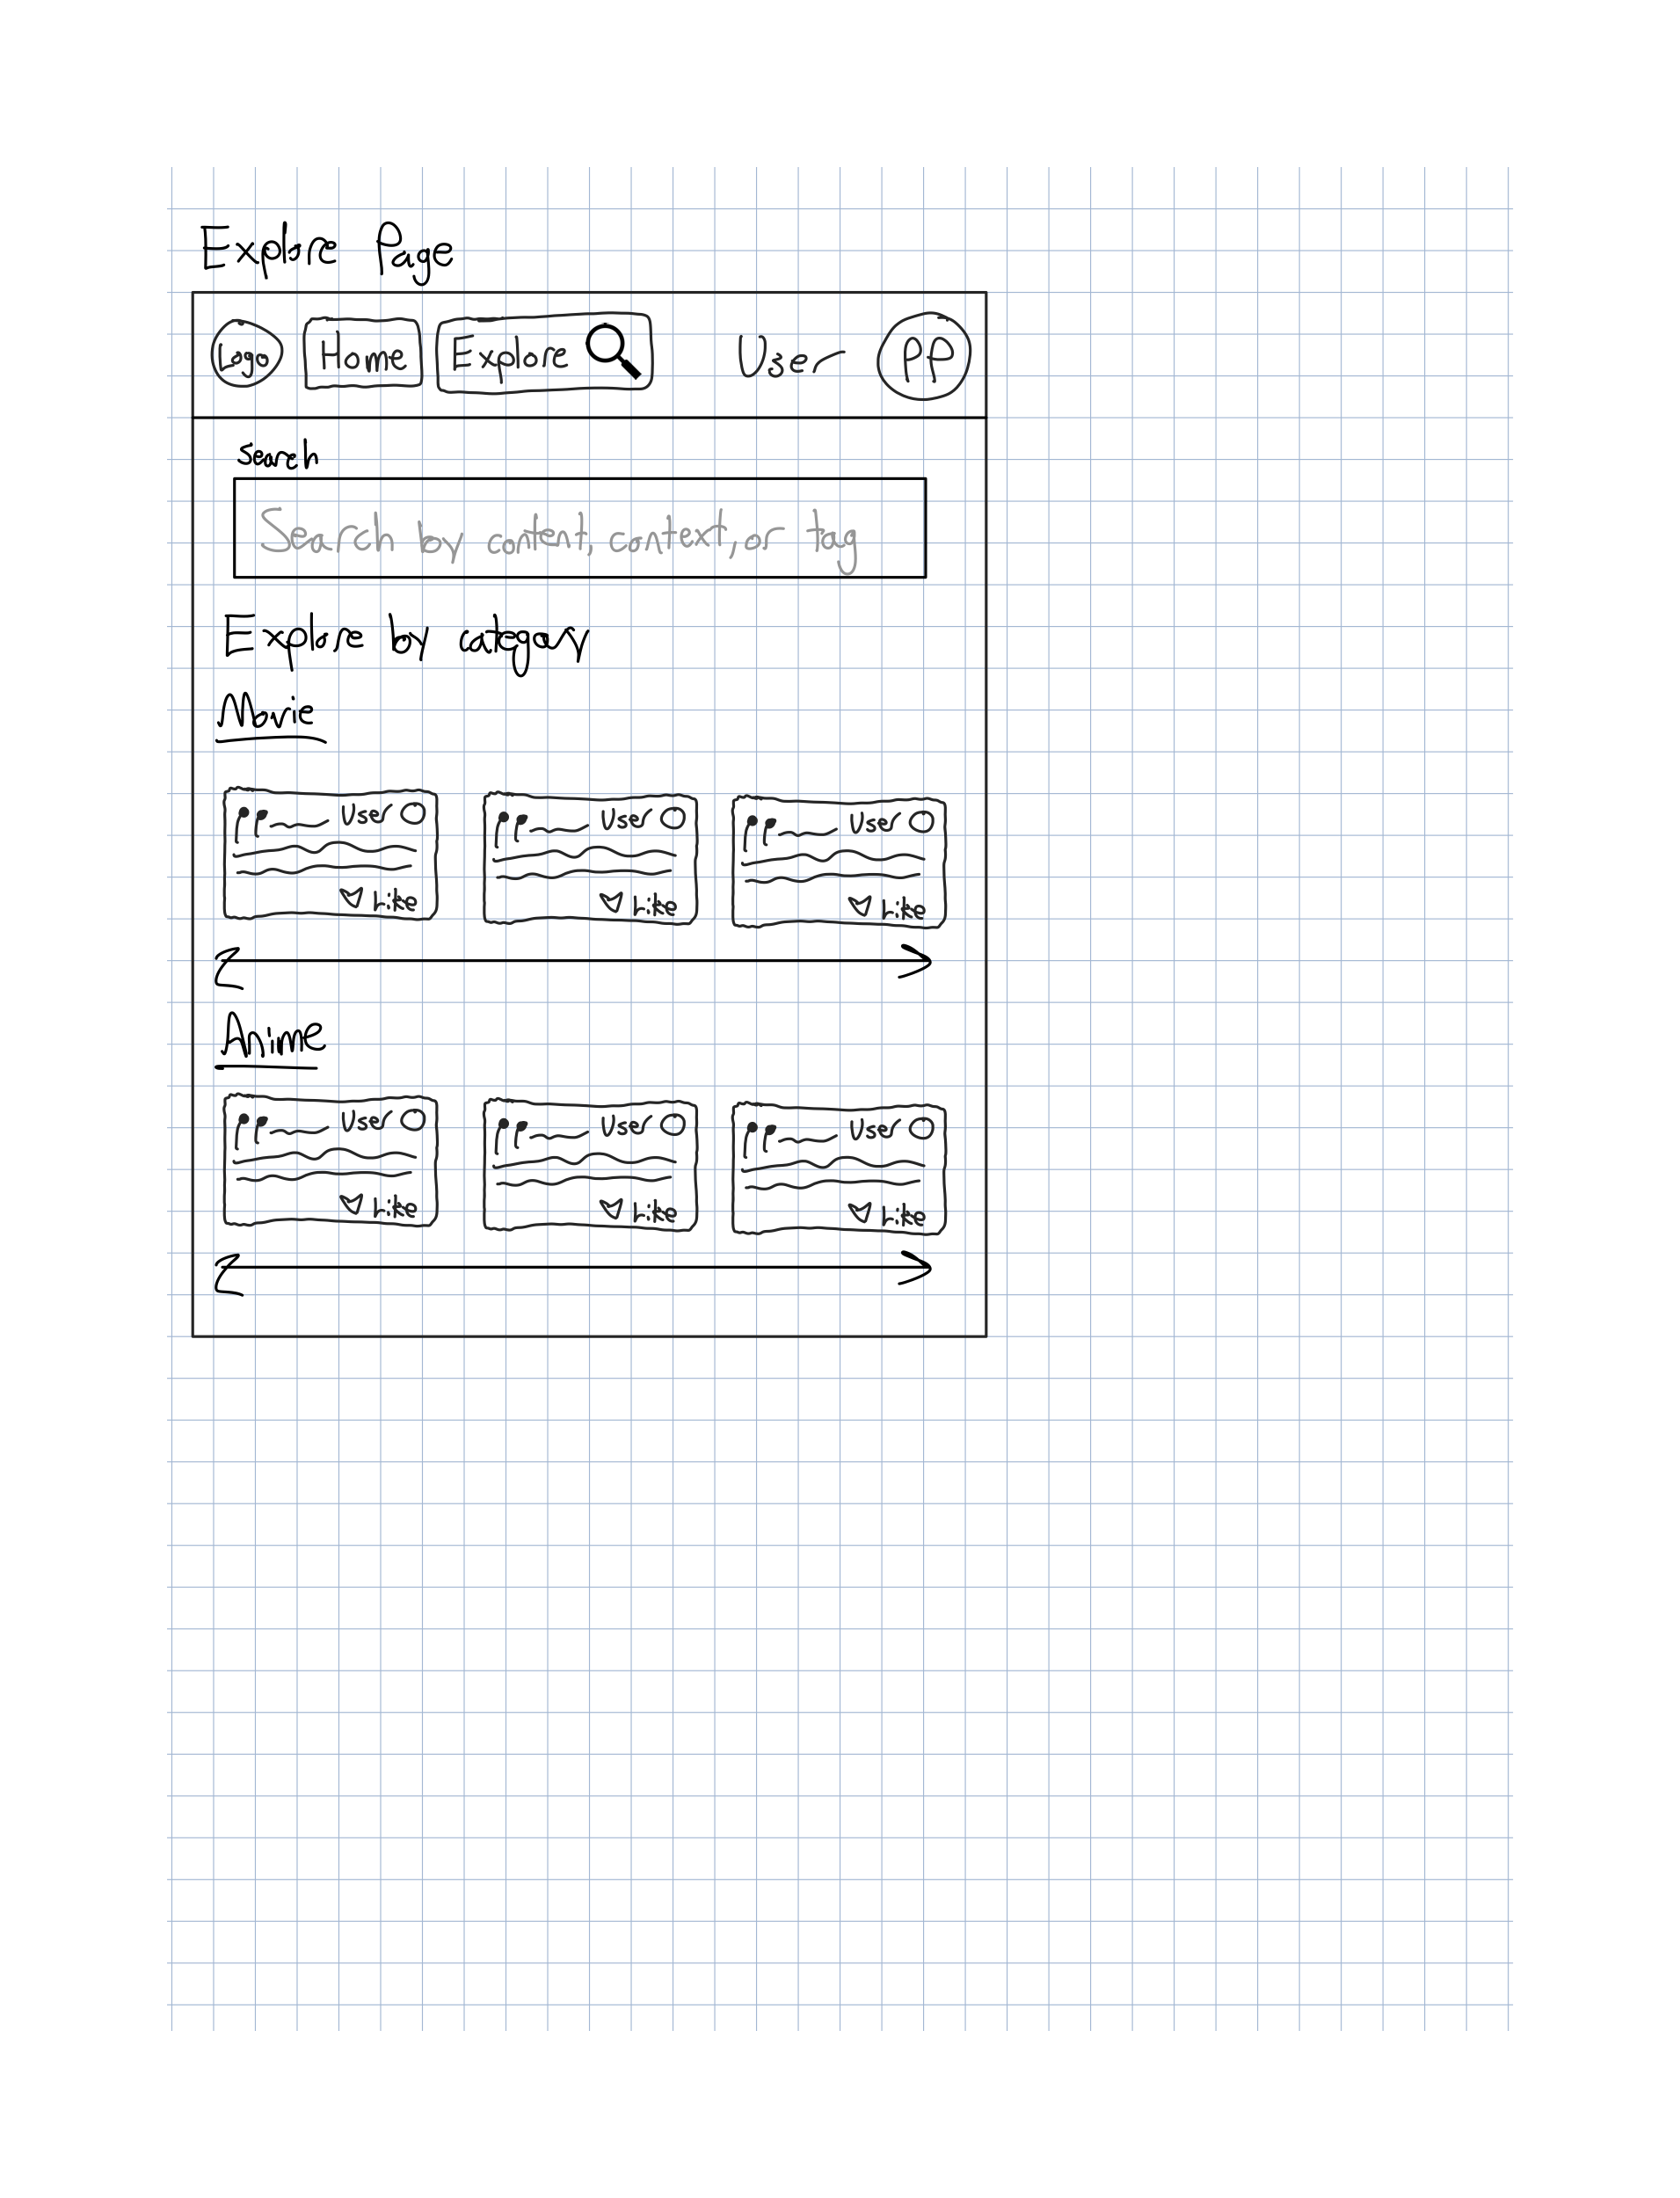 Explore Page
Logo Home Explore User PP
Search
Search by content, context, or tag
Explore by category
Movie
User User User
Like Like Like
Anime
User User User
Like Like Like